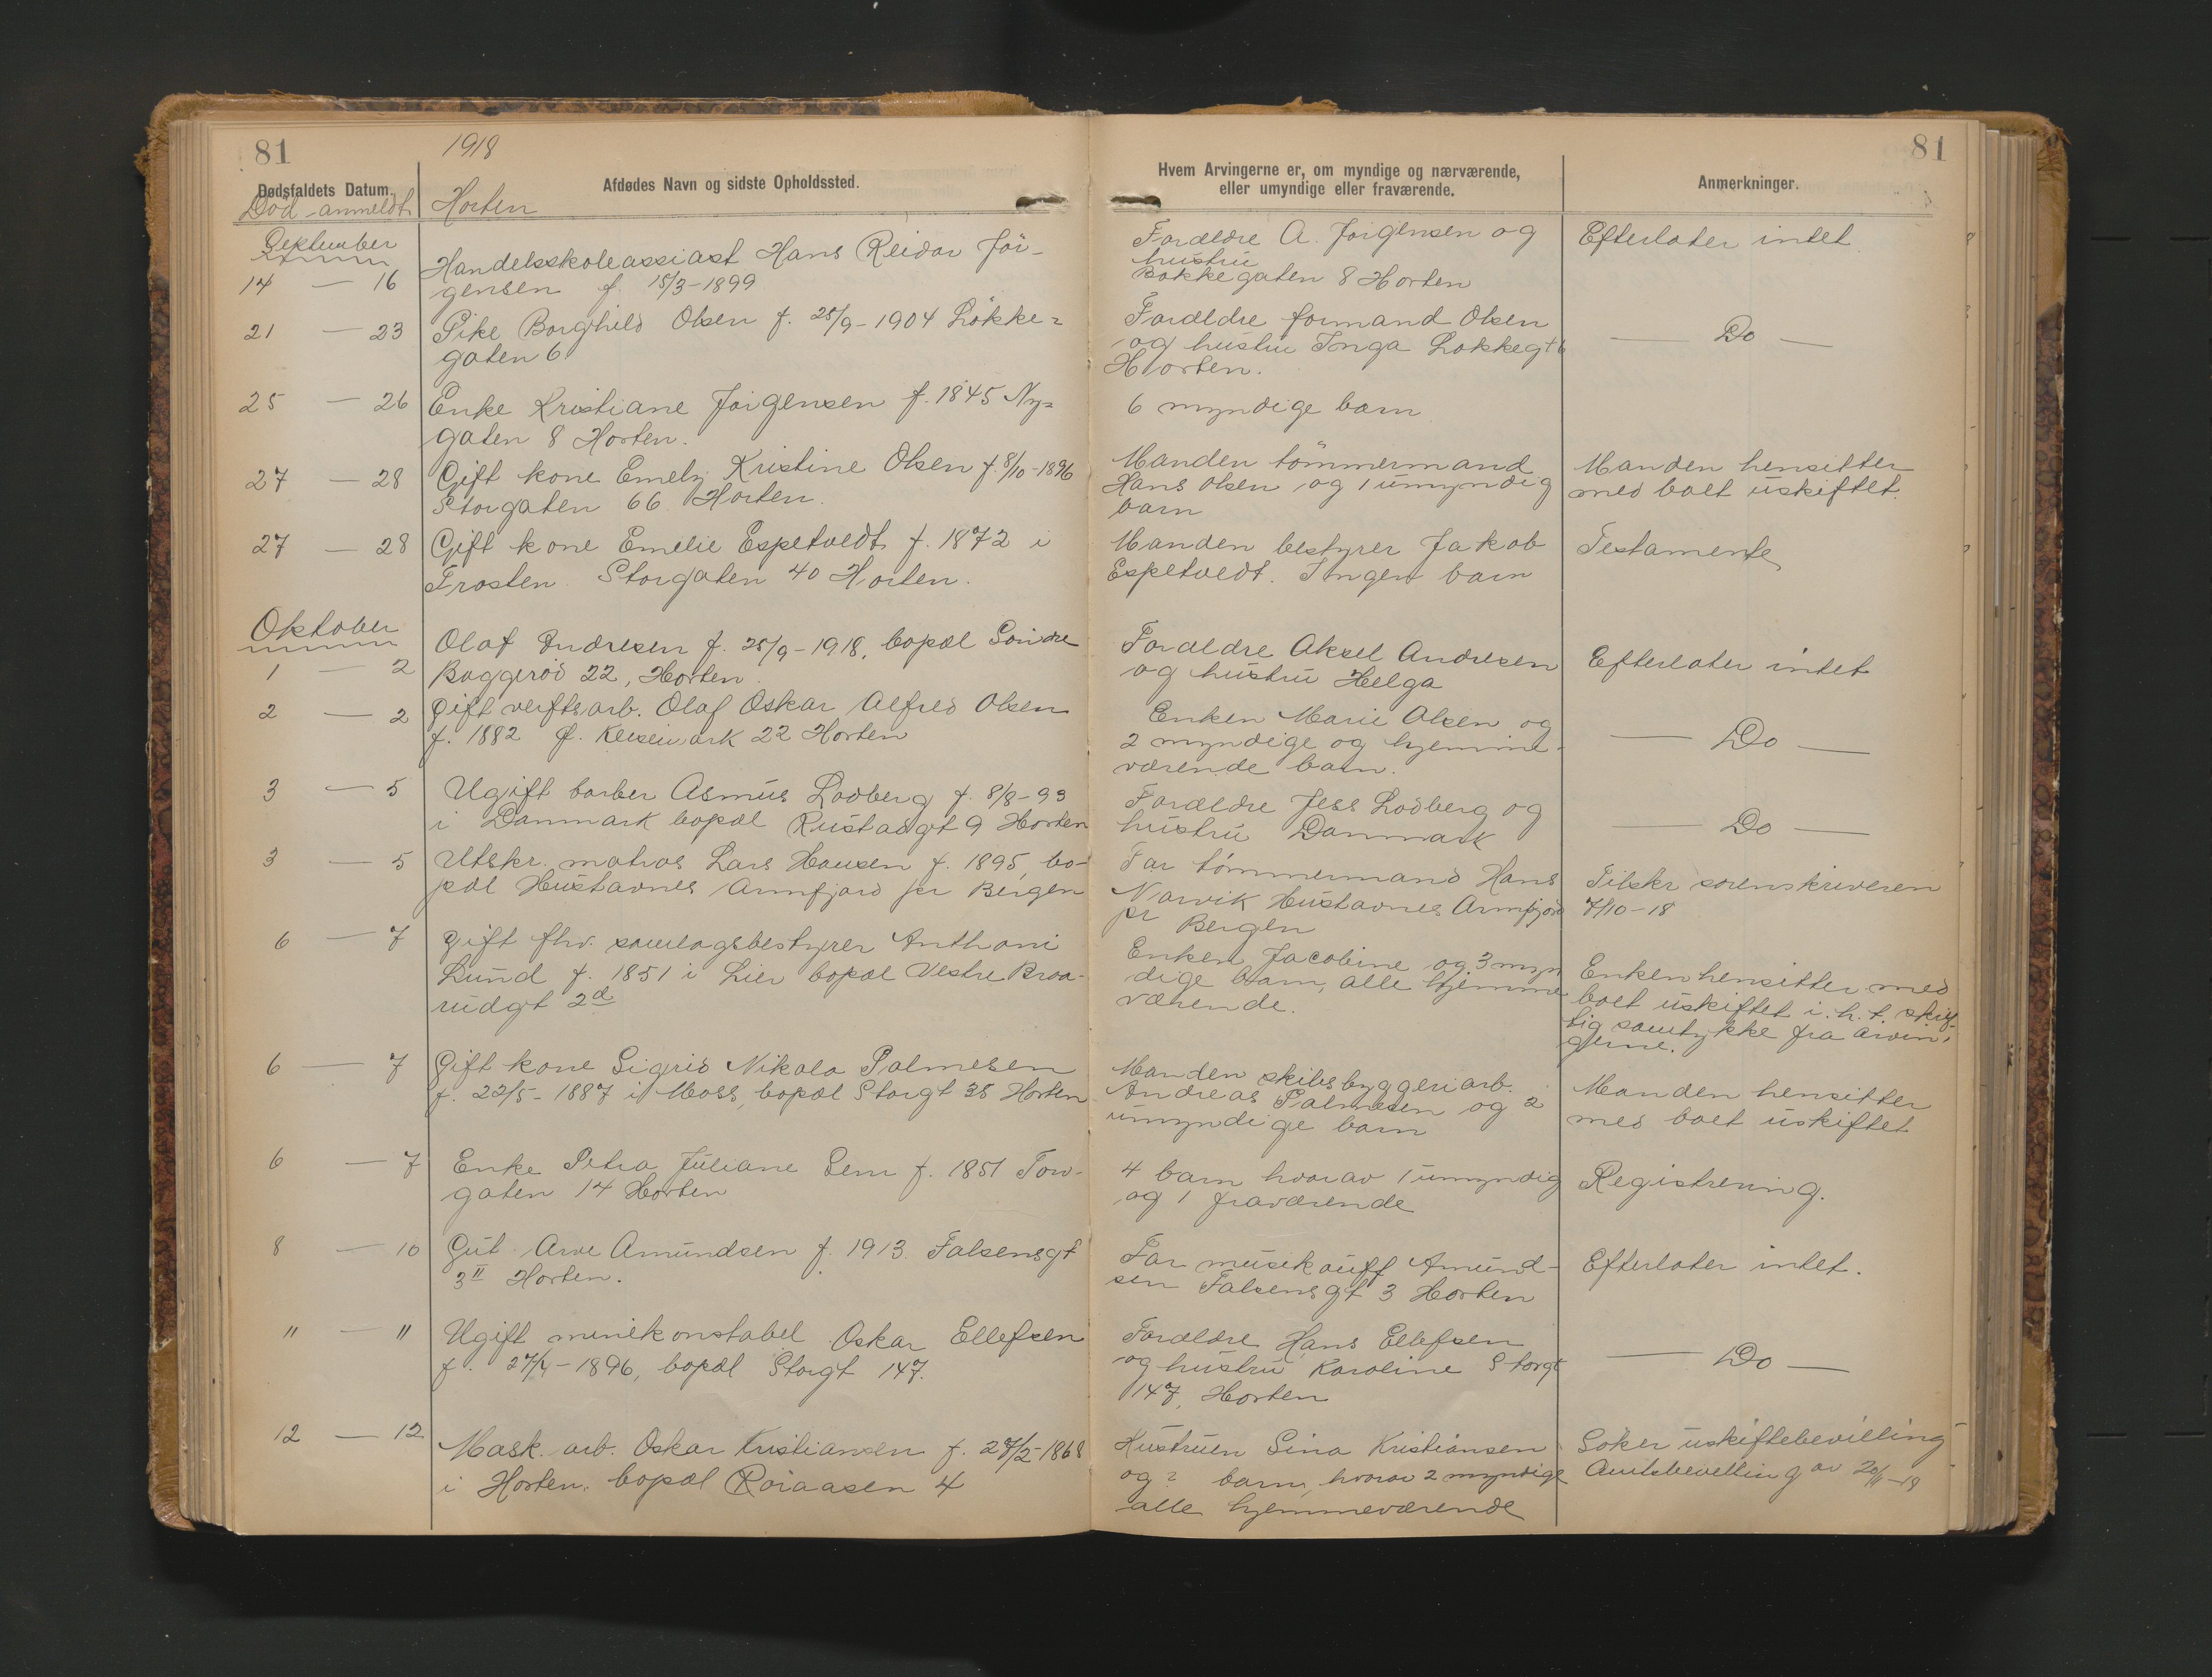 81
1918
81
Dødsfaldets Datum.
Afdødes Navn og sidste Opholdssted.
Hvem Arvingerne er, om myndige og nærværende,
eller umyndige eller fraværende.
Anmerkninger.
Död - anmeldt
Horten
September
14 — 16
Handelsskoleassiast Hans Reidar Jör-
gensen f. 15/3-1899
Forældre A. Jorgensen og
hustru
Bakkegaten 8 Horten
Efterlater intet
21 — 23
Pike Borghild Olsen f. 25/9-1904 Lökke=
gaten 6
Forældre formand Olsen
og hustru Inga Lokkegt 6
Horten.
— Do —
25 — 26
Enke Kristiane Jörgensen f. 1845 Ny=
gaten 8 Horten.
6 myndige barn
27 — 28
Gift kone Emely Kristine Olsen f. 8/10-1896
Storgaten 66 Horten.
Manden tömmermand
Hans Olsen og 1 umyndig
barn
Manden hensitter
med boet uskiftet.
27 — 28
Gift kone Emelie Espetvedt f. 1872 i
Frosten. Storgaten 40 Horten.
Manden bestyrer Jakob
Espetvedt. Ingen barn
Testamente
Oktober
1 — 2
Olaf Andresen f. 25/9-1918, bopæl Söndre
Baggerød 22, Horten.
Forældre Aksel Andresen
og hustru Helga
Efterlater intet
2 — 2
Gift verftsarb. Olaf Oskar Alfred Olsen
f. 1882 Ø. Keisemark 22 Horten
Enken Marie Olsen og
2 myndige og hjemme-
værende barn.
— Do —
3 — 5
Ugift barber Asmus Lodberg f. 8/8-93
i Danmark bopæl Rustadgt 9 Horten
Forældre Jess Lodberg og
hustru Danmark
— Do —
3 — 5
Utskr. matros Lars Hansen f. 1895, bo-
pæl Hustavnes Armfjord pr Bergen
Far tömmermand Hans
Narvik Hustavnes Armfjord
pr Bergen
Tilskr sorenskriveren
7/10-18
6 — 7
Gift fhv. samlagsbestyrer Anthoni
Lund f. 1851 i Lier bopæl Vestre Braa-
rudgt 2d
Enken Jacobine og 3 myn
dige barn, alle hjemme
værende.
Enken hensitter med
boet uskiftet i. h. t. skrif-
tlig samtykke fra arvin-
gerne.
6 — 7
Gift kone Sigrid Nikola Palmesen
f. 22/5-1887 i Moss, bopæl Storgt 38 Horten
Manden skibsbyggeriarb.
Andreas Palmesen og 2
umyndige barn
Manden hensitter
med boet uskiftet
6 — 7
Enke Petra Juliane Sem f. 1851 Torv-
gaten 14 Horten
4 barn hvorav 1 umyndig
og 1 fraværende
Registrering.
8 — 10
Gut Arve Amundsen f. 1913. Falsensgt
3 II Horten.
Far musekauff Amund-
sen Falsensgt 3 Horten
Efterlater intet.
" — "
Ugift minekonstabel Oskar Ellefsen
f. 27/4-1896, bopæl Storgt 147.
Forældre Hans Ellefsen
og hustru Karoline Storgt
147, Horten
— Do —
12 — 12
Mask. arb. Oskar Kristiansen f. 27/2-1868
i Horten. bopæl Röraasen 4
Hustruen Sina Kristiansen
og ? barn, hvorav 2 myndige
alle hjemmeværende
Söker uskiftebevilling
Amtsbevilling av 20/11-18